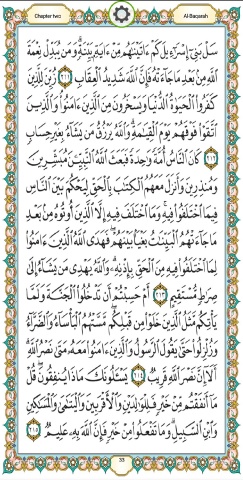 Chapter two
Al-Baqarah
سَلْ بَنِىٓ إِسْرَٰٓءِيلَ كَمْ ءَاتَيْنَٰهُم مِّنْ ءَايَةٍۭ بَيِّنَةٍ وَمَن يُبَدِّلْ نِعْمَةَ
ٱللَّهِ مِنۢ بَعْدِ مَا جَآءَتْهُ فَإِنَّ ٱللَّهَ شَدِيدُ ٱلْعِقَابِ ٢١١ زُيِّنَ لِلَّذِينَ
كَفَرُوا۟ ٱلْحَيَوٰةُ ٱلدُّنْيَا وَيَسْخَرُونَ مِنَ ٱلَّذِينَ ءَامَنُوا۟ وَٱلَّذِينَ
ٱتَّقَوْا۟ فَوْقَهُمْ يَوْمَ ٱلْقِيَٰمَةِ وَٱللَّهُ يَرْزُقُ مَن يَشَآءُ بِغَيْرِ حِسَابٍ
٢١٢ كَانَ ٱلنَّاسُ أُمَّةً وَٰحِدَةً فَبَعَثَ ٱللَّهُ ٱلنَّبِيِّـۧنَ مُبَشِّرِينَ
وَمُنذِرِينَ وَأَنزَلَ مَعَهُمُ ٱلْكِتَٰبَ بِٱلْحَقِّ لِيَحْكُمَ بَيْنَ ٱلنَّاسِ
فِيمَا ٱخْتَلَفُوا۟ فِيهِ وَمَا ٱخْتَلَفَ فِيهِ إِلَّا ٱلَّذِينَ أُوتُوهُ مِنۢ بَعْدِ
مَا جَآءَتْهُمُ ٱلْبَيِّنَٰتُ بَغْيًۢا بَيْنَهُمْ فَهَدَى ٱللَّهُ ٱلَّذِينَ ءَامَنُوا۟
لِمَا ٱخْتَلَفُوا۟ فِيهِ مِنَ ٱلْحَقِّ بِإِذْنِهِۦ وَٱللَّهُ يَهْدِى مَن يَشَآءُ إِلَىٰ
صِرَٰطٍ مُّسْتَقِيمٍ ٢١٣ أَمْ حَسِبْتُمْ أَن تَدْخُلُوا۟ ٱلْجَنَّةَ وَلَمَّا
يَأْتِكُم مَّثَلُ ٱلَّذِينَ خَلَوْا۟ مِن قَبْلِكُم مَّسَّتْهُمُ ٱلْبَأْسَآءُ وَٱلضَّرَّآءُ
وَزُلْزِلُوا۟ حَتَّىٰ يَقُولَ ٱلرَّسُولُ وَٱلَّذِينَ ءَامَنُوا۟ مَعَهُۥ مَتَىٰ نَصْرُ ٱللَّهِ
أَلَآ إِنَّ نَصْرَ ٱللَّهِ قَرِيبٌ ٢١٤ يَسْـَٔلُونَكَ مَاذَا يُنفِقُونَ قُلْ
مَآ أَنفَقْتُم مِّنْ خَيْرٍ فَلِلْوَٰلِدَيْنِ وَٱلْأَقْرَبِينَ وَٱلْيَتَٰمَىٰ وَٱلْمَسَٰكِينِ
وَٱبْنِ ٱلسَّبِيلِ وَمَا تَفْعَلُوا۟ مِنْ خَيْرٍ فَإِنَّ ٱللَّهَ بِهِۦ عَلِيمٌ ٢١٥
33